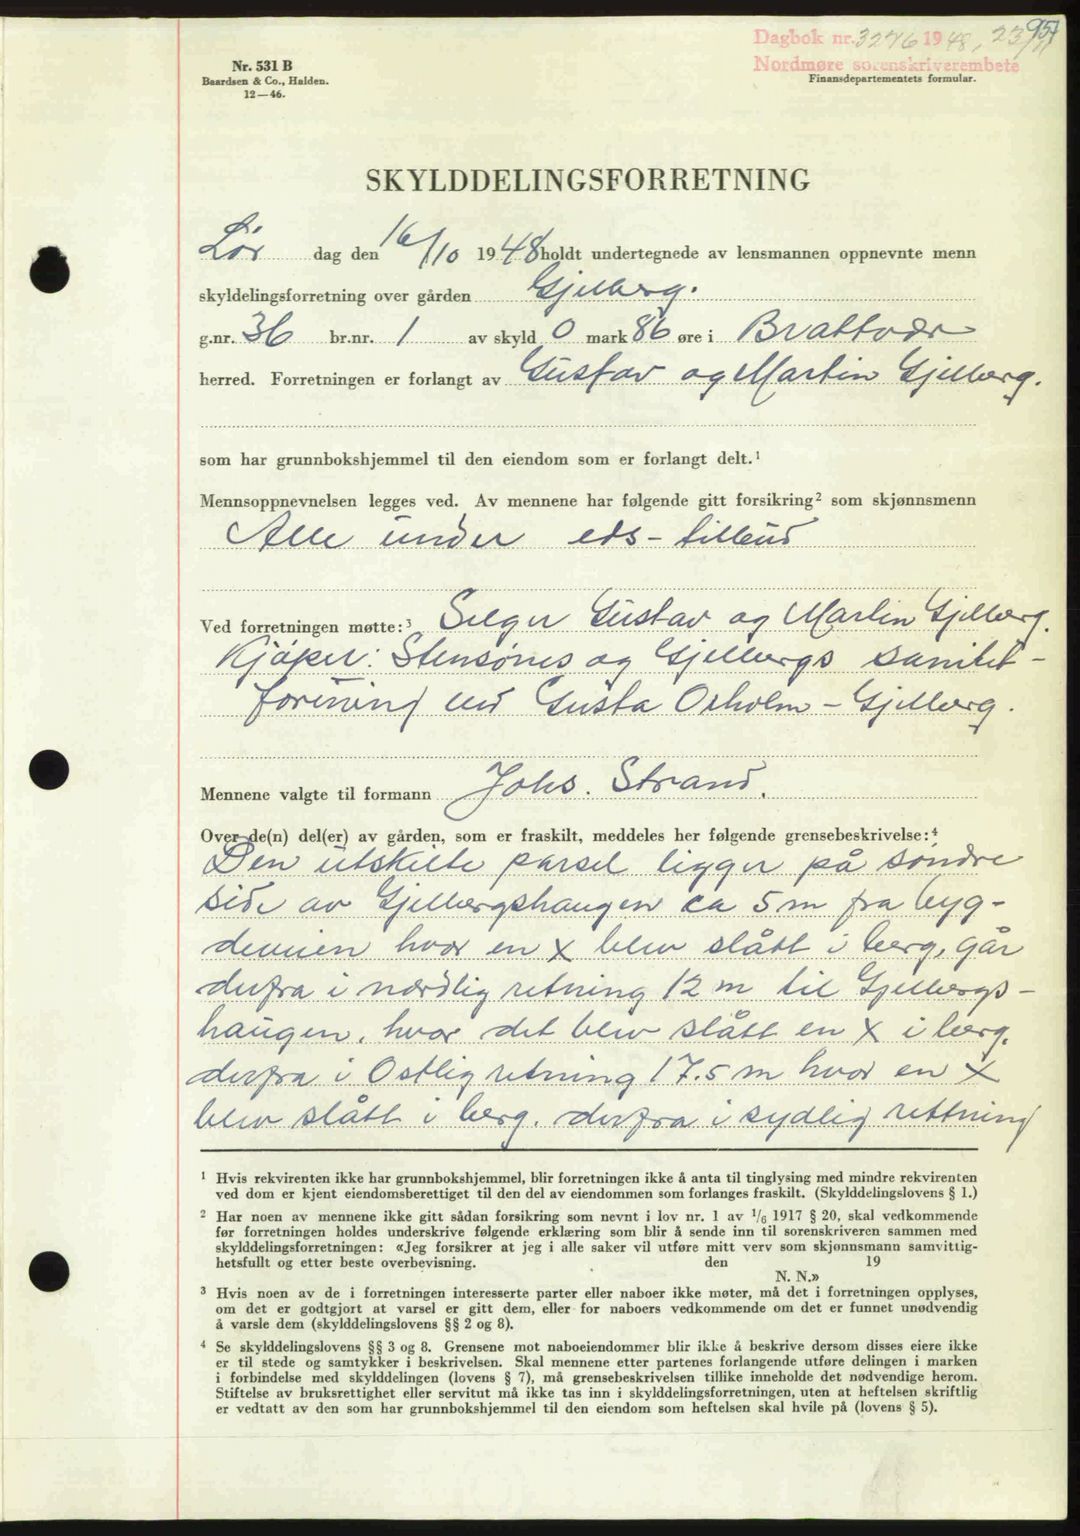 957
Dagbok nr. 3276 1948, 23/11
Nordmøre sorenskriverembete
Nr. 531 B
Baardsen & Co., Halden.
12—46.
Finansdepartementets formular.
SKYLDDELINGSFORRETNING
Lør dag den 16/10 1948 holdt undertegnede av lensmannen oppnevnte menn
skyldelingsforretning over gården Gjelberg.
g.nr. 36 br.nr. 1 av skyld 0 mark 86 øre i Brattvær
herred. Forretningen er forlangt av Gustav og Martin Gjelberg.
som har grunnbokshjemmel til den eiendom som er forlangt delt.¹
Mennsoppnevnelsen legges ved. Av mennene har følgende gitt forsikring² som skjønnsmenn
Alle under eds-tilbud
Ved forretningen møtte:³ Selger Gustav og Martin Gjelberg.
Kjøper: Stensønes og Gjelbergs sanitet-
forening ved Gusta Orholm - Gjelberg.
Mennene valgte til formann Johs. Strand.
Over de(n) del(er) av gården, som er fraskilt, meddeles her følgende grensebeskrivelse:⁴
Den utskilte parsel ligger på søndre
side av Gjelbergshaugen ca 5 m fra byg-
deveien hvor en X blev slått i berg, går
derfra i nordlig retning 12 m til Gjelbergs-
haugen, hvor det blev slått en X i berg,
derfra i Ostlig retning 17.5 m hvor en X
blev slått i berg. derfra i sydlig rettning
¹ Hvis rekvirenten ikke har grunnbokshjemmel, blir forretningen ikke å anta til tinglysing med mindre rekvirenten
ved dom er kjent eiendomsberettiget til den del av eiendommen som forlanges fraskilt. (Skylddelingslovens § 1.)
² Har noen av mennene ikke gitt sådan forsikring som nevnt i lov nr. 1 av 1/6 1917 § 20, skal vedkommende
før forretningen holdes underskrive følgende erklæring som blir å sende inn til sorenskriveren sammen med
skylddelingsforretningen: «Jeg forsikrer at jeg i alle saker vil utføre mitt verv som skjønnsmann samvittig-
hetsfullt og etter beste overbevisning. den 19
N. N.»
³ Hvis noen av de i forretningen interesserte parter eller naboer ikke møter, må det i forretningen opplyses,
om det er godtgjort at varsel er gitt dem, eller for naboers vedkommende om det er funnet unødvendig
å varsle dem (skylddelingslovens §§ 2 og 8).
⁴ Se skylddelingslovens §§ 3 og 8. Grensene mot naboeiendommer blir ikke å beskrive dersom disses eiere ikke
er til stede og samtykker i beskrivelsen. Skal mennene etter partenes forlangende utføre delingen i marken
i forbindelse med skylddelingen (lovens § 7), må grensebeskrivelsen tillike inneholde det nødvendige herom.
Stiftelse av bruksrettighet eller servitut må ikke tas inn i skylddelingsforretningen, uten at heftelsen skriftlig
er vedtatt av den som har grunnbokshjemmel til den eiendom som heftelsen skal hvile på (lovens § 5).